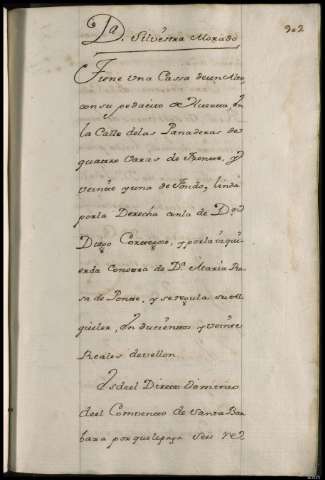 902
Dª. Silvestra Morado
Tiene una Cassa de un Alto,
con su pedacito de Huerta, en
la Calle de las Panaderas de
quattro varas de Frente, y
veinte y una de Fondo, linda
por la Derecha con la de Dⁿ
Diego Cornejos, y por la izqui
erda con otra de Dª Maria Ro
sa de Ponte, y se regula su All
quiler, en Ducientos y veinte
Reales de vellon.
Es de el Directo Dominio
de el Combento de Santa Bar
bara porque le paga seis rˢ 2